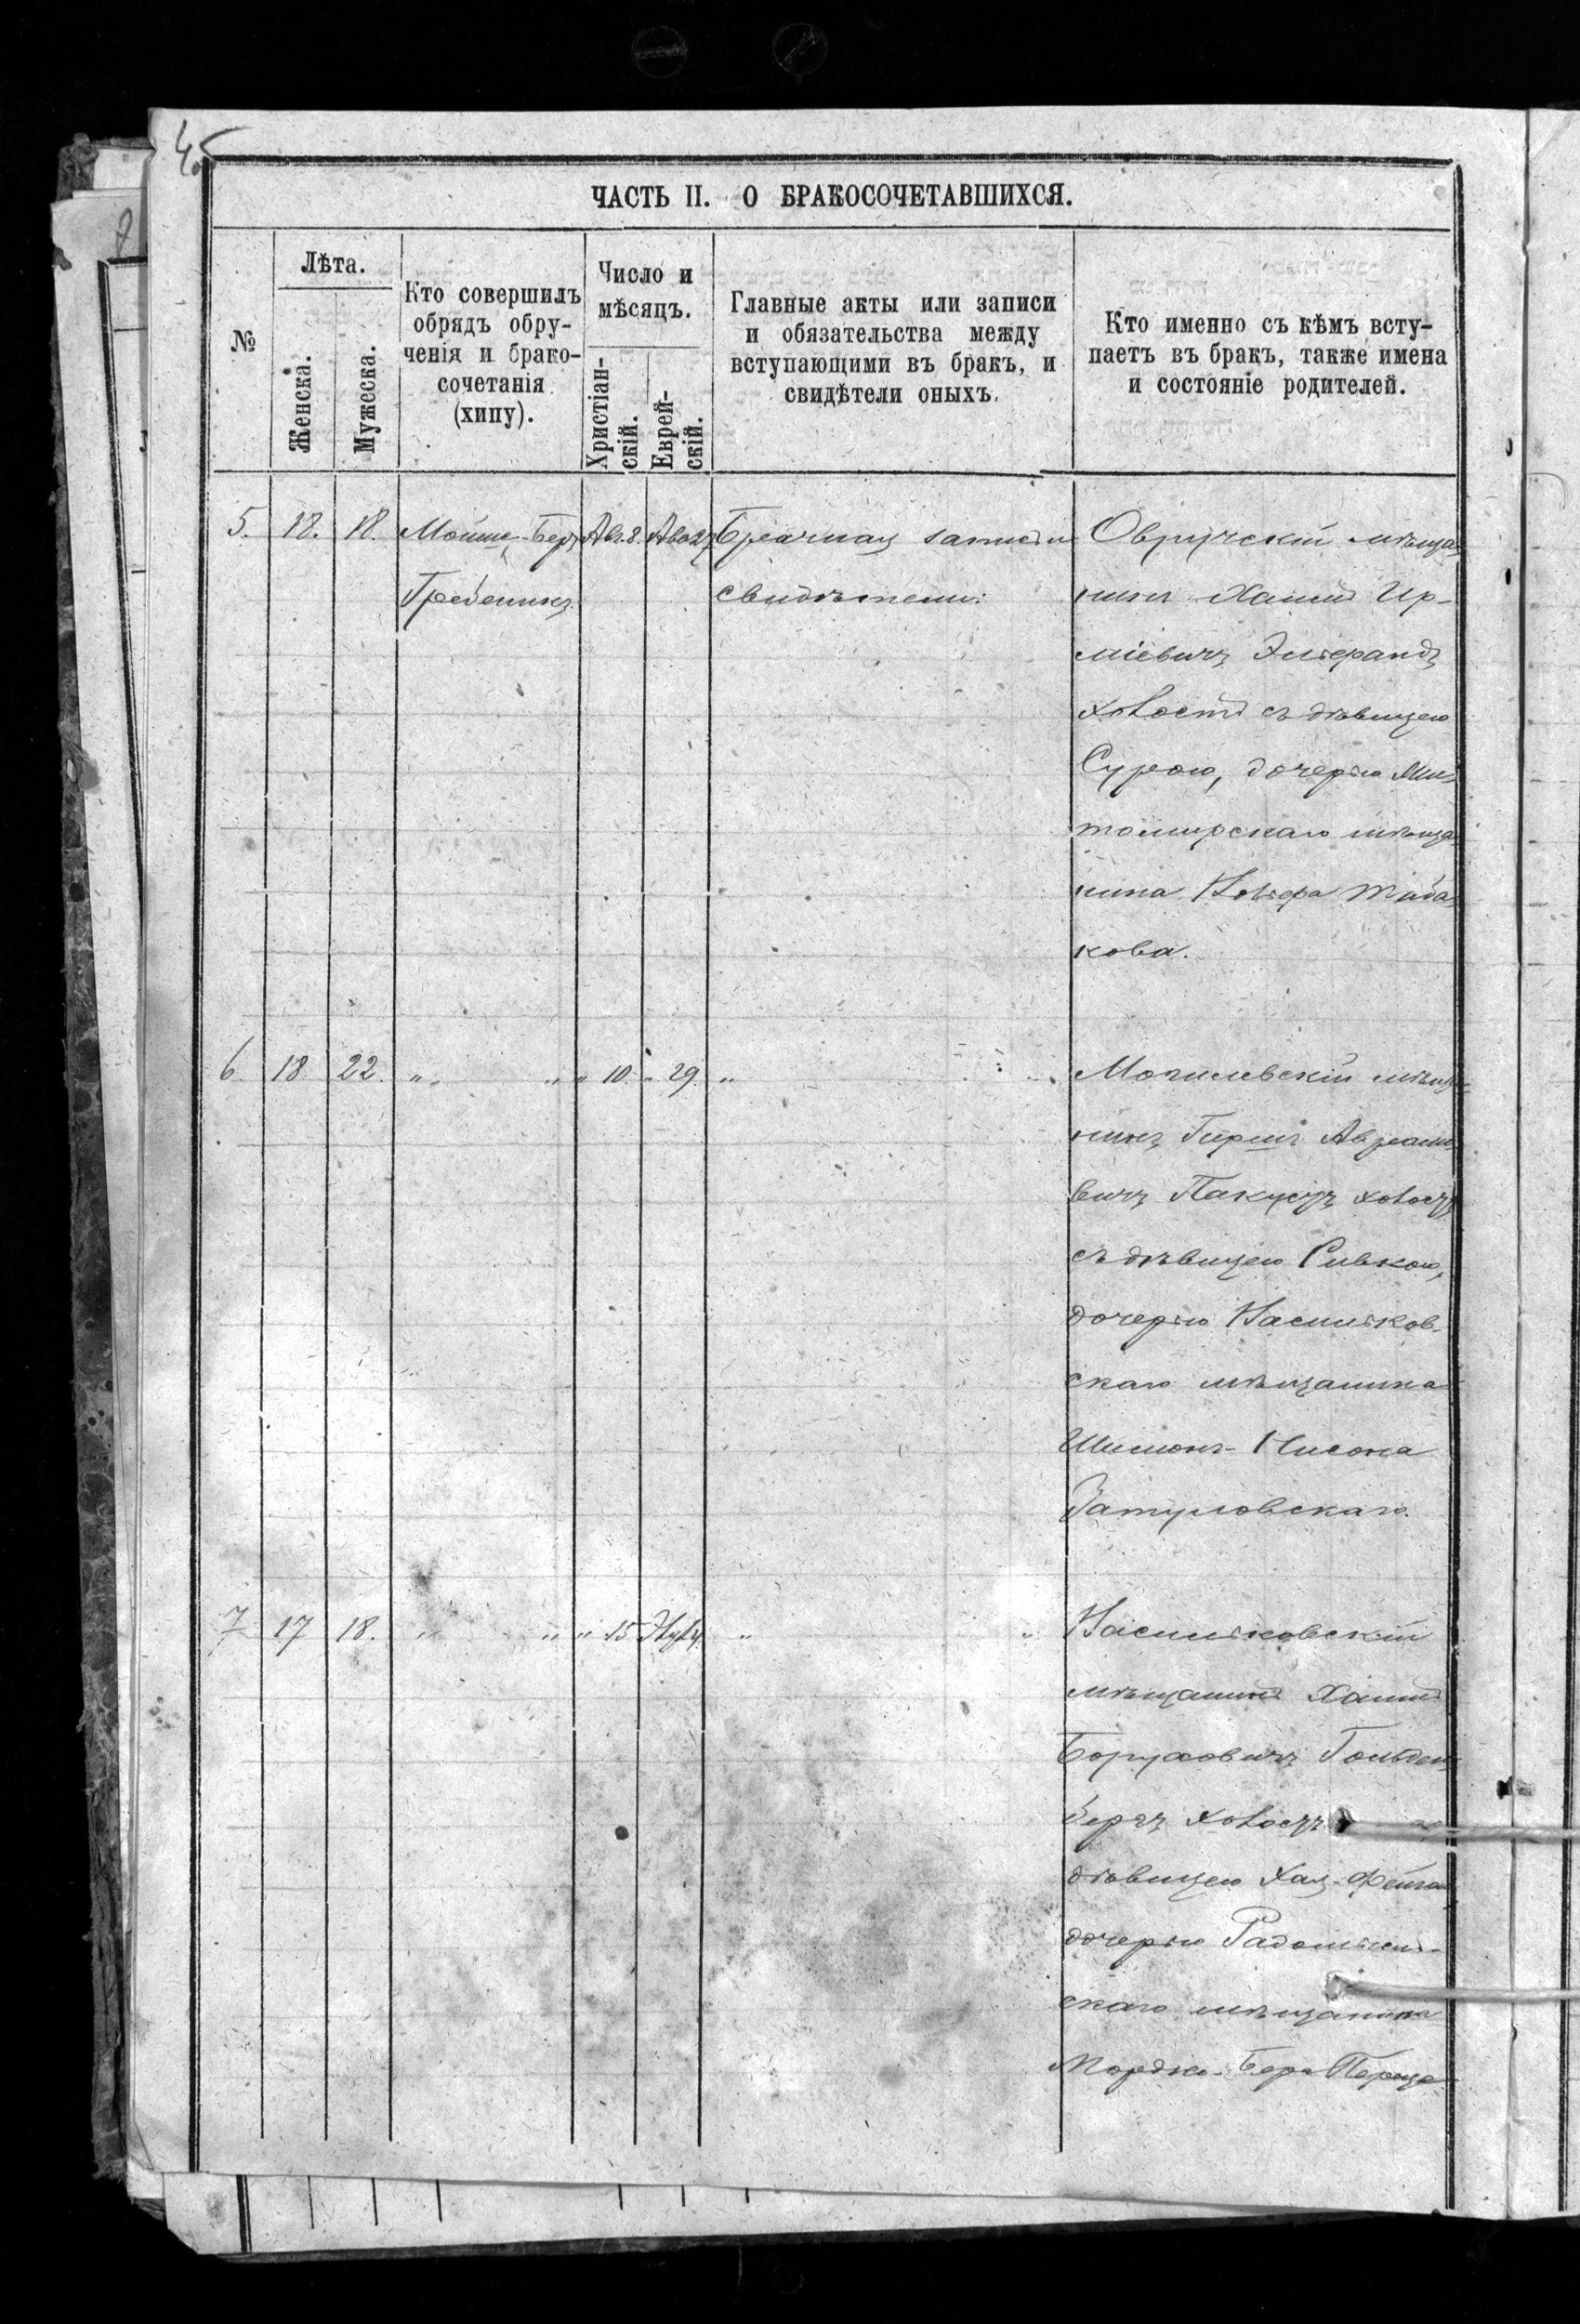 45
ЧАСТЬ II. О БРАКОСОЧЕТАВШИХСЯ.
№
Лѣта.
Женска.
Мужеска.
Кто совершилъ
обрядъ обру-
ченія и брако-
сочетанія
(хипу).
Число и
мѣсяцъ.
Христіан-
скій.
Еврей-
скій.
Главные акты или записи
и обязательства между
вступающими въ бракъ, и
свидѣтели оныхъ.
Кто именно съ кѣмъ всту-
паетъ въ бракъ, также имена
и состояніе родителей.
5. 18. 18. Мойше-Беръ Авг. 8. Ава 27 Брачная запись и Овручскій мѣща-
Гребеникъ свидѣтели: нинъ Хаимъ Ир-
міевичъ
холостъ съ дѣвицею
Сурою, дочерью Жи-
томирскаго мѣща-
нина Таба-
кова.
6 18 22. " " " 10. " 29. " " Могилевскій мѣща-
нинъ Гершъ Авраамо-
вичъ холостъ
съ дѣвицею Ривкою,
дочерью Васильков-
скаго мѣщанина
Шимонъ-Нисона
Затуловскаго.
7 17 18. " " " 15 Элул 4. " " Васильковскій
мѣщанинъ Хаимъ
Боруховичъ Гольден-
бергъ холостъ
дѣвицею Хая-Фейгою
дочерью Радомысль-
скаго мѣщанина
Мордко-Бера Переца